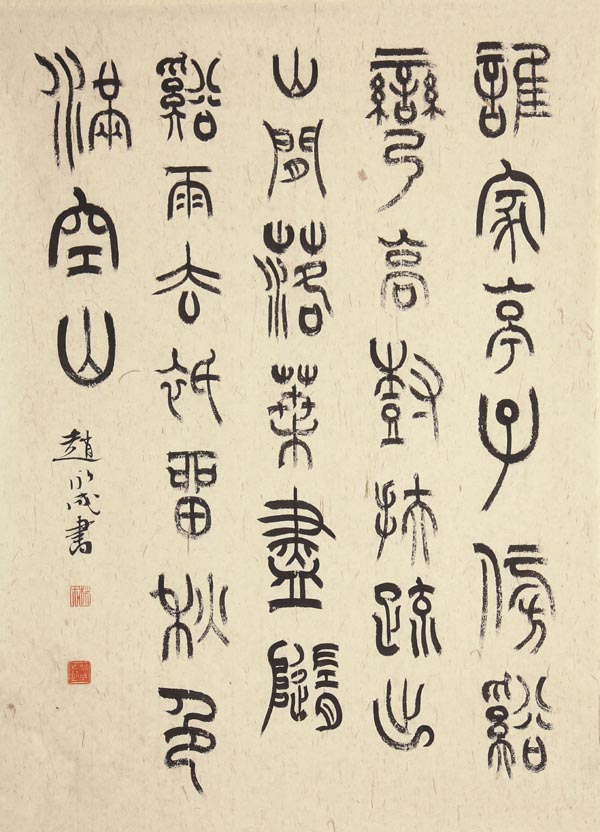 誰家亭子傍谿
彎高樹扶疏出
山間落葉盡隨
谿雨去祇留秋色
滿空山
趙永成書